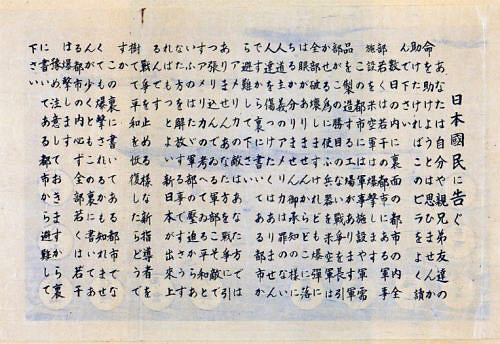 日本國民に告ぐ
あなたは自分や親兄弟友達の
命を助けようとは思ひませんか
助けたければこのビラをよく讀
んで下さい
数日の内に裏面の都市の内全
部若くは若干の都市にある軍事
施設を米空軍は爆撃します
この都市には軍事施設や軍需
品を製造する工場があります軍
部がこの勝目のない戦争を長引
かせる為に使ふ兵器を米空軍は
全部破壊しますけれども爆弾には
眼がありませんからどこに落
ちるか分りません御承知の様に
人道主義のアメリカは罪のない
人達を傷つけたくはありません
ですから裏に書いてある都市か
ら避難して下さい
アメリカの敵はあなた方では
ありませんあなた方を戦争に引
張り込んでゐる軍部こそ敵で
すアメリカの考へてゐる平和と
いふのはたゞ軍部の壓迫から
あなた方を解放する事ですさう
すればもつとよい新日本が出来上
るんです
戦争を止める様な新指導者を
樹てゝ平和を恢復したらどうで
すか
この裏に書いてある都市でな
くても爆撃されるかも知れませ
んが少くともこの裏に書いてあ
る都市の内必ず全部若くは若干
は爆撃します
豫め注意しておきますから裏
に書いてある都市から避難して
下さい